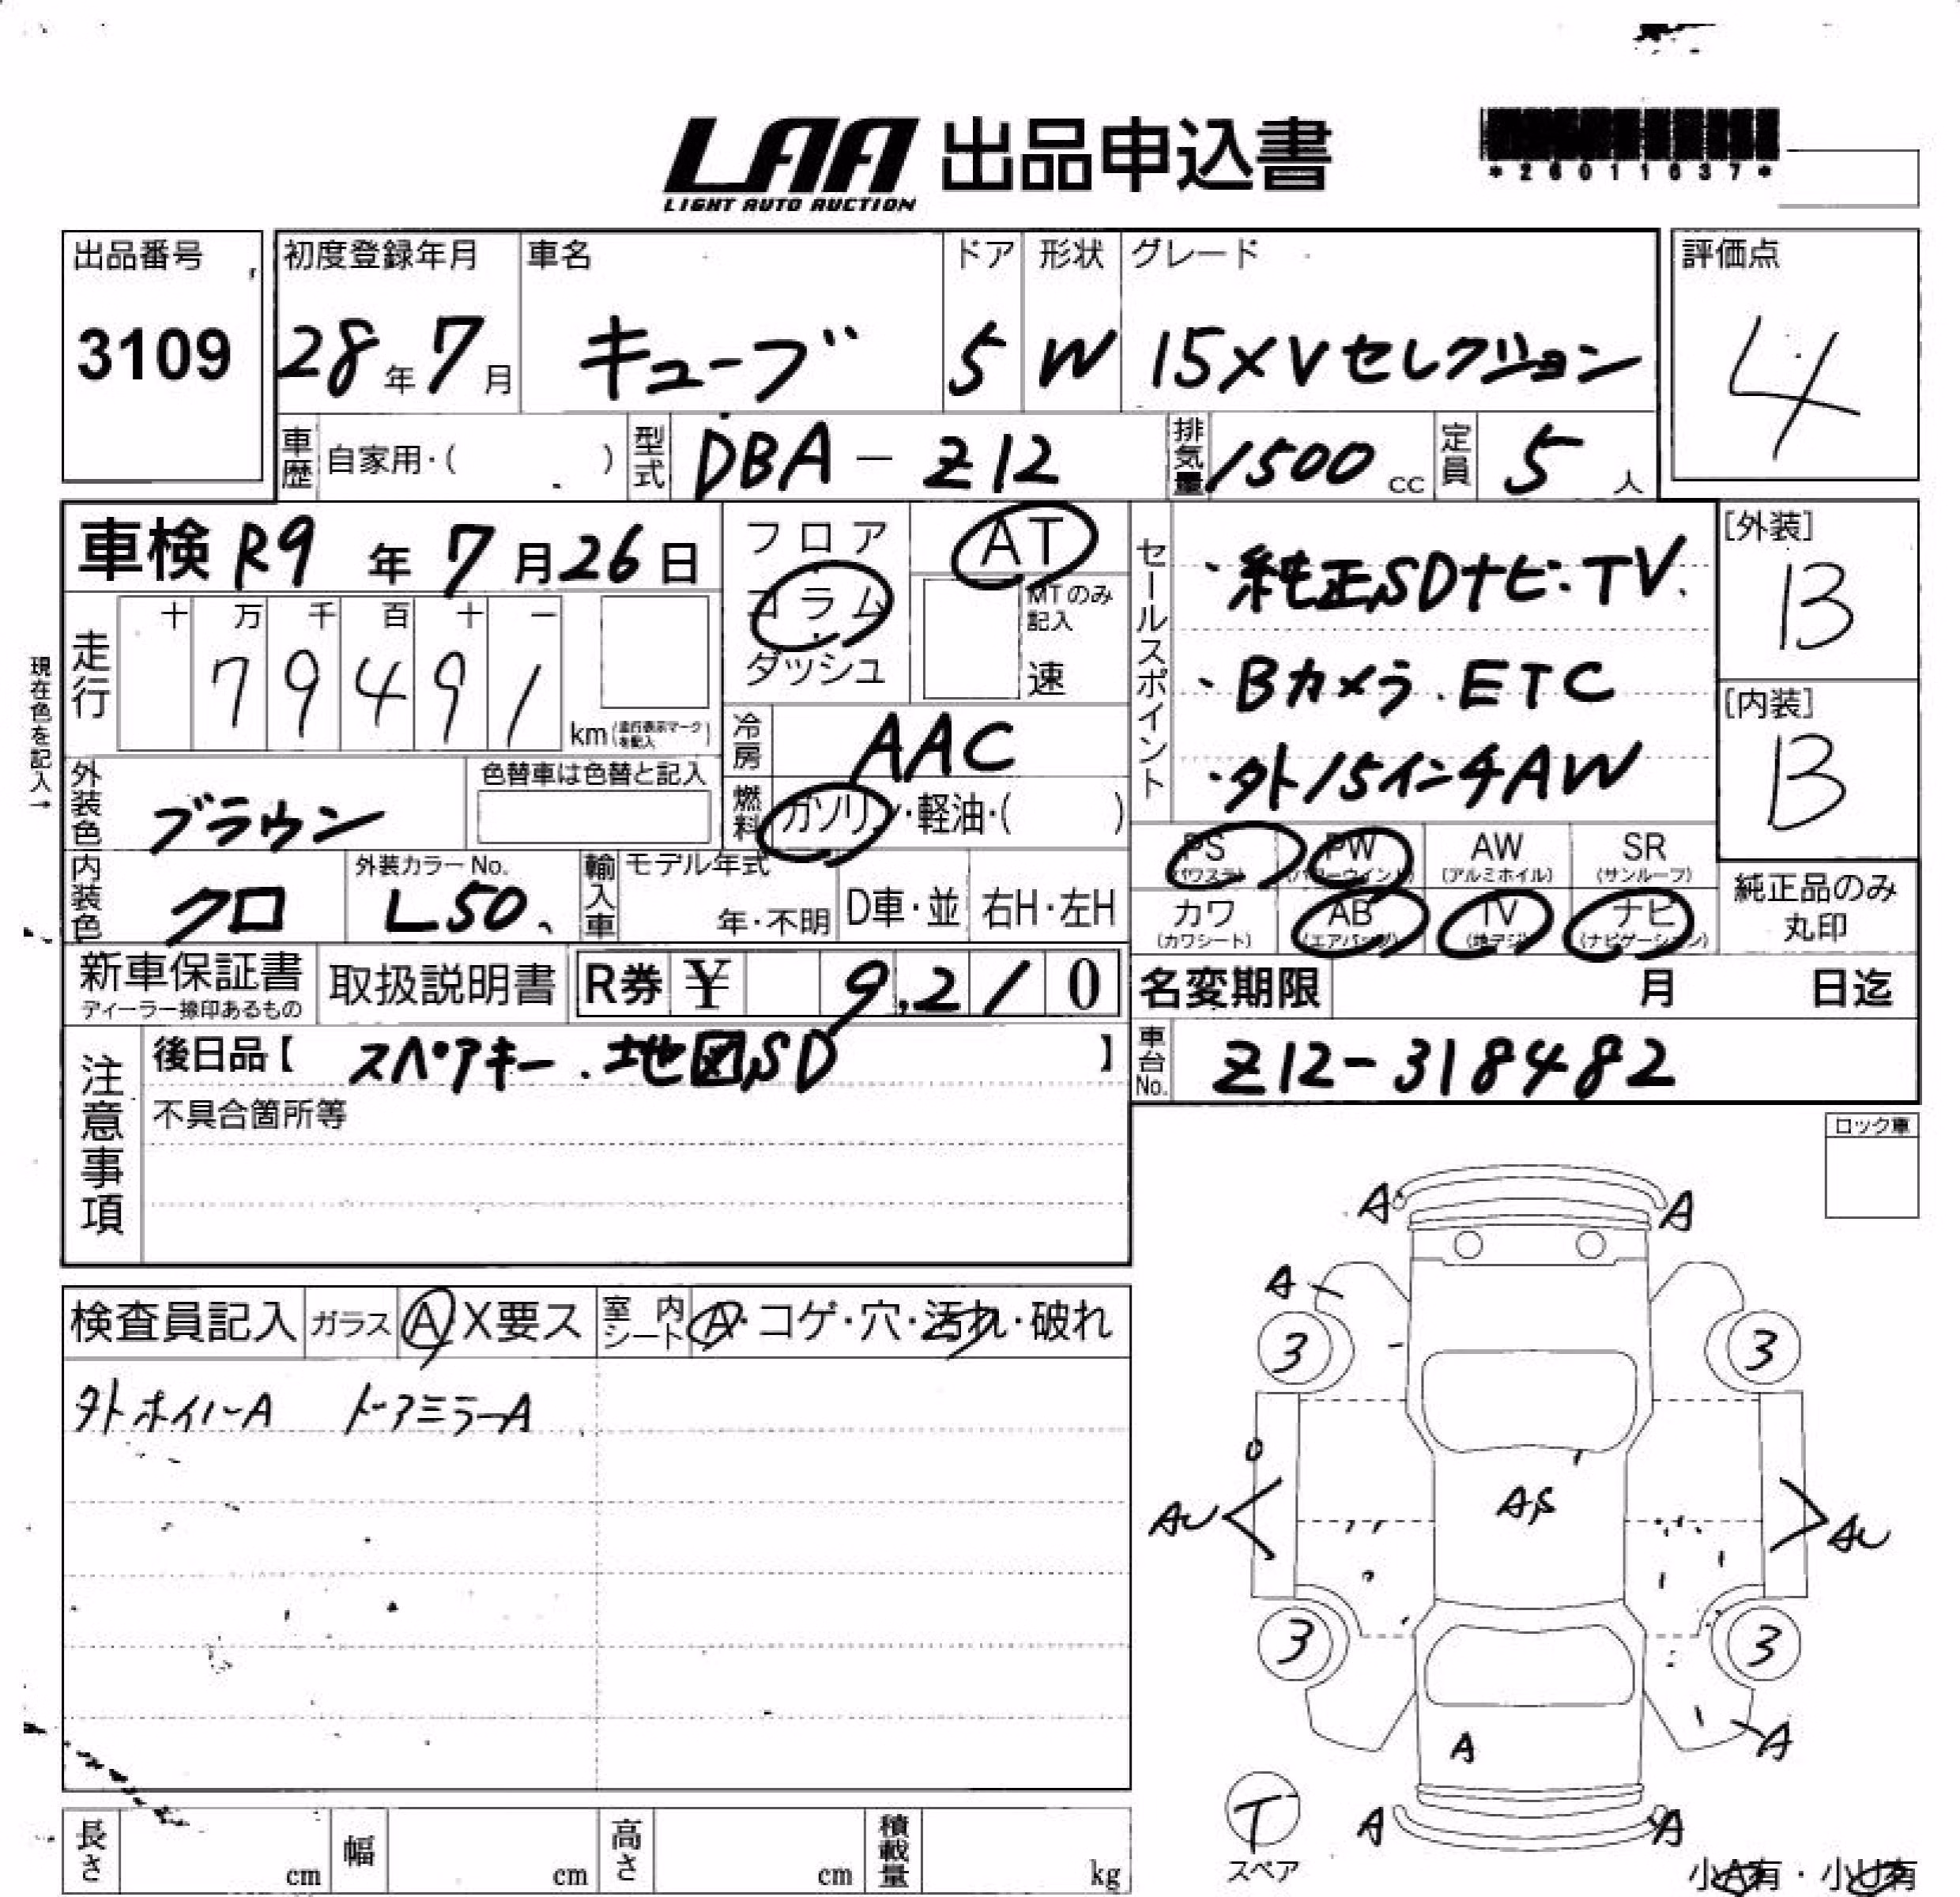 LAA 出品申込書
LIGHT AUTO AUCTION
*26011637*
出品番号 初度登録年月 車名 ドア 形状 グレード 評価点
3109 28年7月 キューブ 5 W 15XVセレクション 4
車歴 自家用・( ) 型式 DBA-Z12 排気量 1500cc 定員 5人
車検 R9年7月26日 フロア AT
コラム MTのみ記入
ダッシュ 速
走行 十万千百十一
79491
km (走行表示マークを記入)
現在色を記入→
冷房 AAC
燃料 ガソリン・軽油・( )
セールスポイント
・純正SDナビ・TV.
・Bカメラ.ETC
・外15インチAW
[外装]
B
[内装]
B
外装色 ブラウン 色替車は色替と記入
PS (パワステ) PW (パワーウインド) AW (アルミホイル) SR (サンルーフ)
カワ (カワシート) AB (エアバッグ) TV (地デジ) ナビ (ナビゲーション)
純正品のみ
丸印
内装色 クロ 外装カラーNo. L50、 輸入車 モデル年式 年・不明 D車・並 右H・左H
新車保証書 取扱説明書 R券 ¥ 9,210
ディーラー捺印あるもの
名変期限 月 日迄
注意事項
後日品【 スペアキー.地図SD 】
不具合箇所等
車台No. Z12-318482
ロック車
検査員記入 ガラス A X要ス 室内シート A・コゲ・穴・汚れ・破れ
外ホイルA ドアミラーA
A A
A
3 3
AU AS AU
3 3
A A
A A
T
スペア
小A有・小U有
長さ cm 幅 cm 高さ cm 積載量 kg